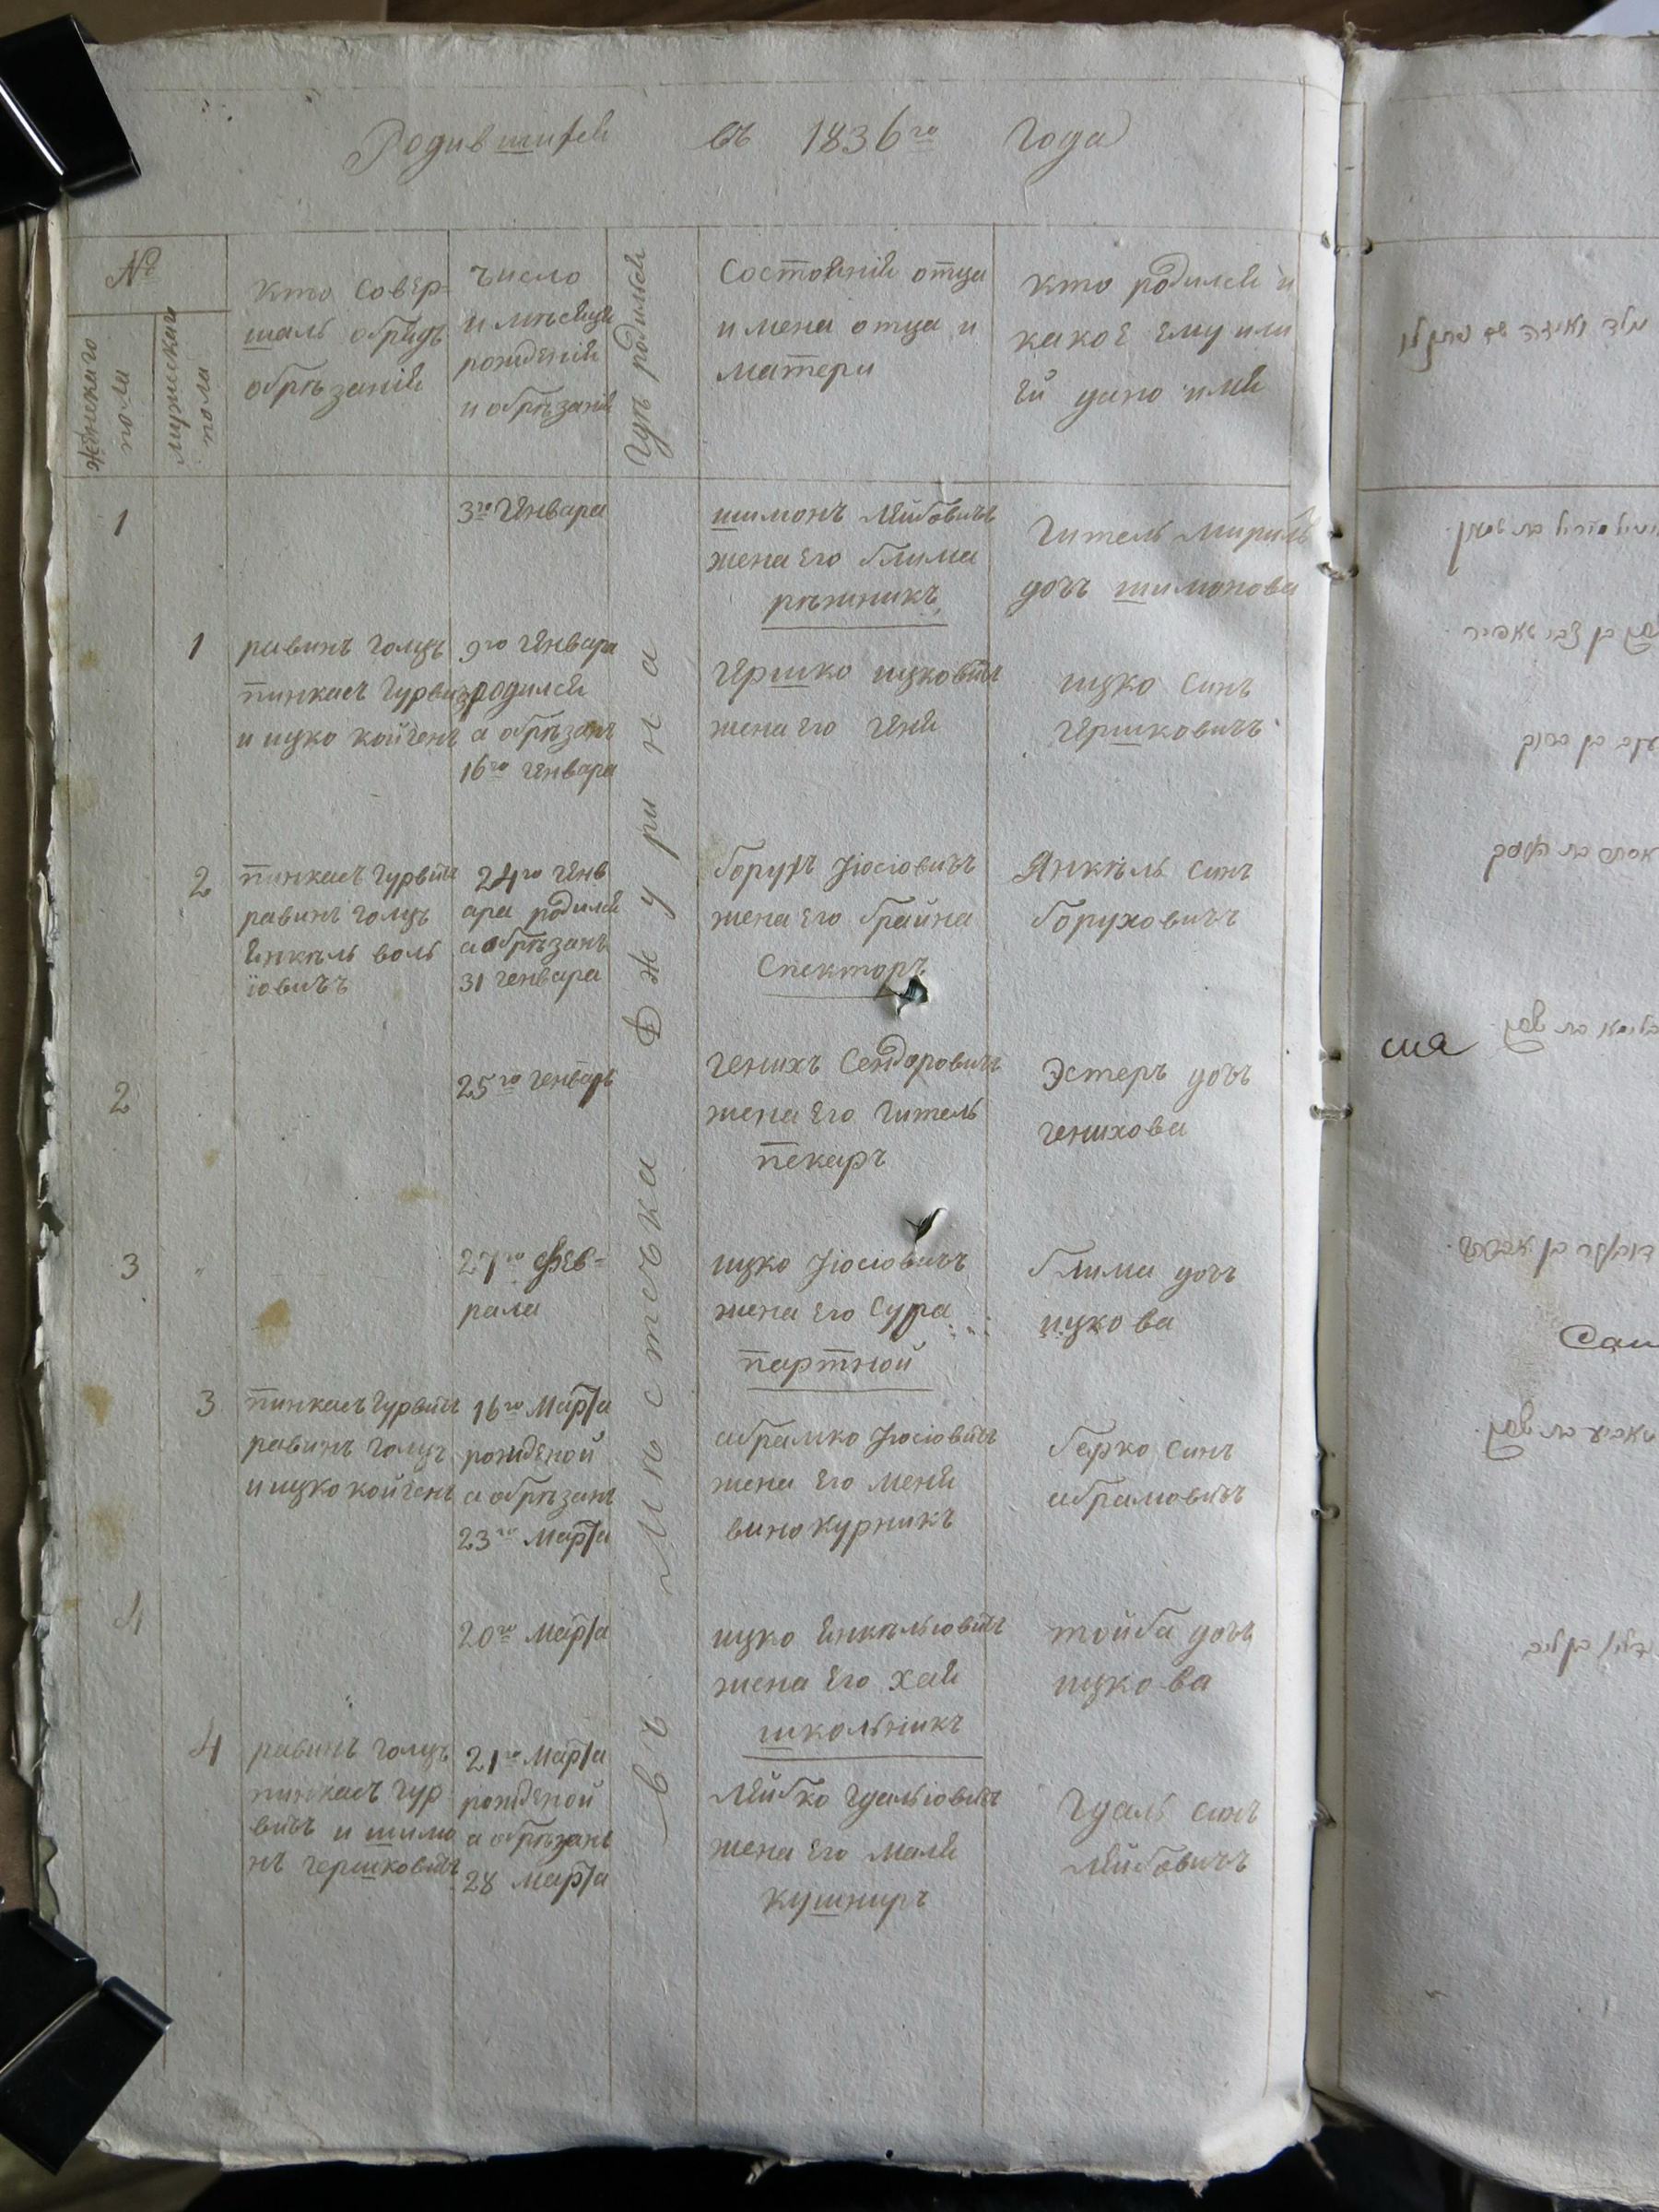 Родившихся въ 1836го года
№
женскаго пола
мужскаго пола
кто совер-
шаль обрядъ
обрѣзанія
число
и мѣсяца
рожденія
и обрѣзанія
гдѣ родился
состоянія отца
имена отца и
матери
кто родился и
какое ему или
ей дано имя
1
3го генвара
шимонъ Лейбовичъ
жена его блима
рѣзникъ
гитель мириль
дочъ шимонова
1
равинъ голцъ
пинкасъ гурвицъ
и ицко койгенъ
9го генвара
родился
а обрѣзанъ
16го генвара
гершко ицковичъ
жена его геня
ицко синъ
гершковичъ
2
пинкасъ гурвичъ
равинъ голцъ
янкѣль воль
іовичъ
24го генв
ара родился
а обрѣзанъ
31 генвара
борухъ Іосіовичъ
жена его брайна
спекторъ
Янкѣль синъ
боруховичъ
2
25го генваръ
генихъ сендоровичъ
жена его гитель
пекаръ
Эстеръ дочъ
генихова
3
27го фев-
рала
ицко Іосіовичъ
жена его сура
партной
блима дочъ
ицкова
3
пинкасъ гурвичъ
равинъ голцъ
и ицко койгенъ
16го марта
рожденой
а обрѣзанъ
23го марта
абрамко Іосіовичъ
жена его меня
винокурникъ
берко синъ
абрамовичъ
4
20го марта
ицко янкѣльіовичъ
жена его хая
школьникъ
тойба дочъ
ицкова
4
равинъ голцъ
пинкасъ гур
вичъ и шимо
нъ гершковичъ
21го марта
рожденой
а обрѣзанъ
28 марта
Лейбко гдальіовичъ
жена его маля
кушниръ
гдаль синъ
Лейбовичъ
въ Мѣстечка Джурина
сия